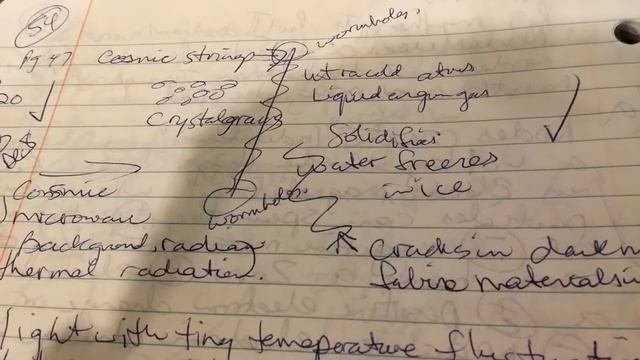 54
Pg 47 Cosmic strings wormholes.
20 ultracold atoms
Liquid argon gas
Crystalgrains
Solidifies
water freezes
Cosmic in ice
microwave wormholes
Background, radia
thermal radiation. cracks in dark m
fabric materials in
light with tiny temeperature